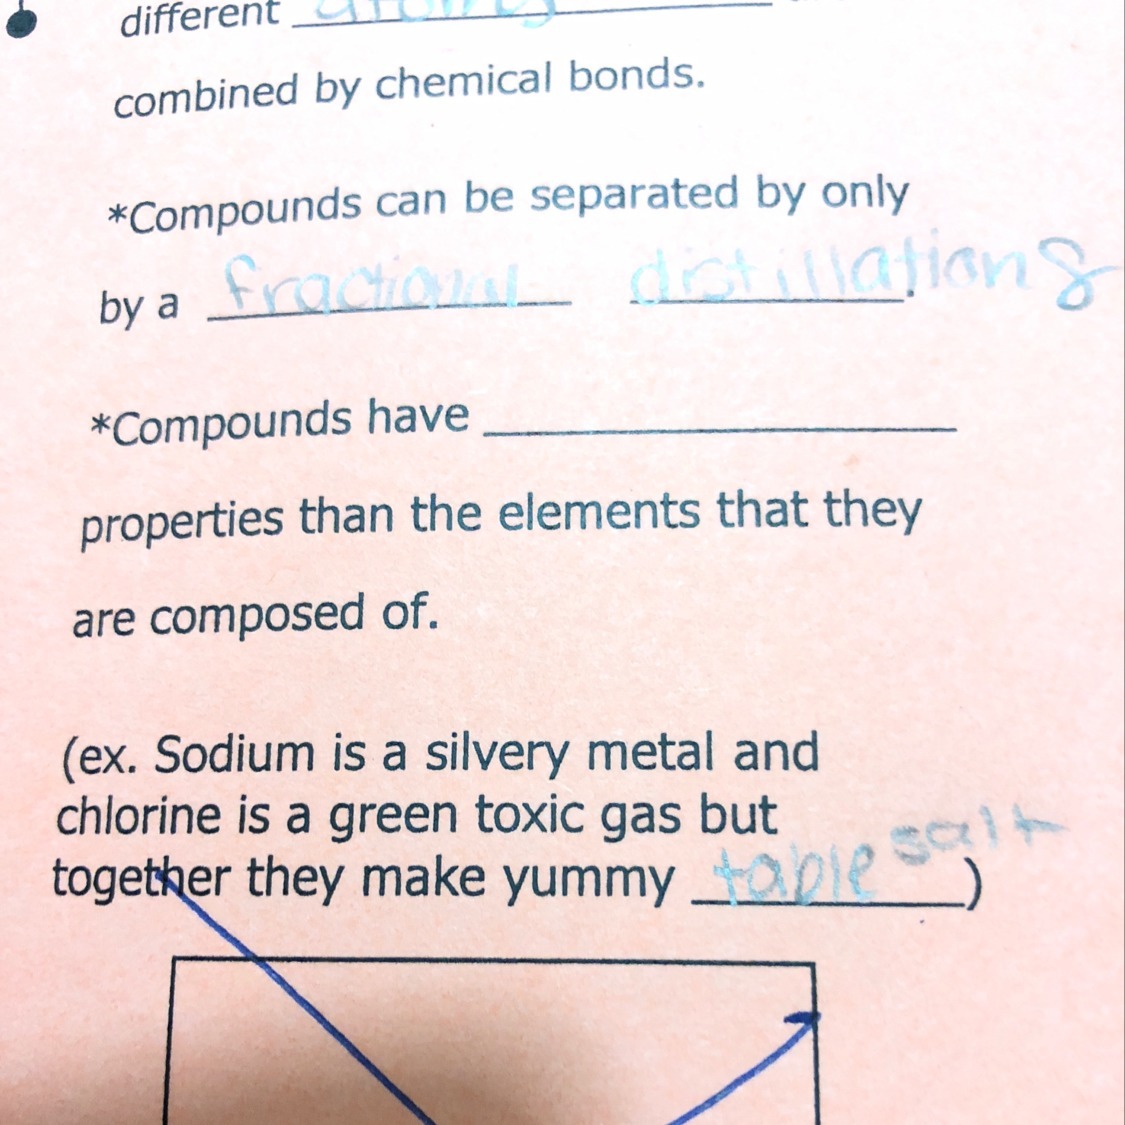 different atoms
combined by chemical bonds.
*Compounds can be separated by only
by a fractional distillations.
*Compounds have
properties than the elements that they
are composed of.
(ex. Sodium is a silvery metal and
chlorine is a green toxic gas but
together they make yummy table salt)